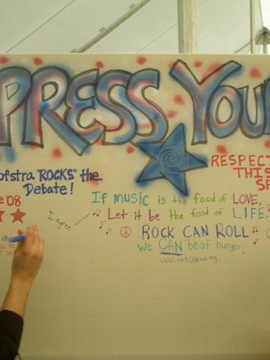 PRESS YOU
RESPECT
THIS
SP
ofstra "ROCKS" the
Debate!
e 08
I agree
If MUSIC is the food of LOVE,
Let it be the food of LIFE.
ROCK CAN ROLL
We CAN beat hunger!